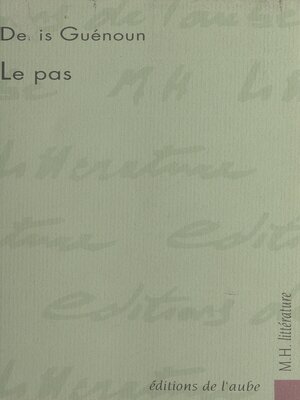 De is Guénoun
Le pas
M.H. littérature
éditions de l'aube